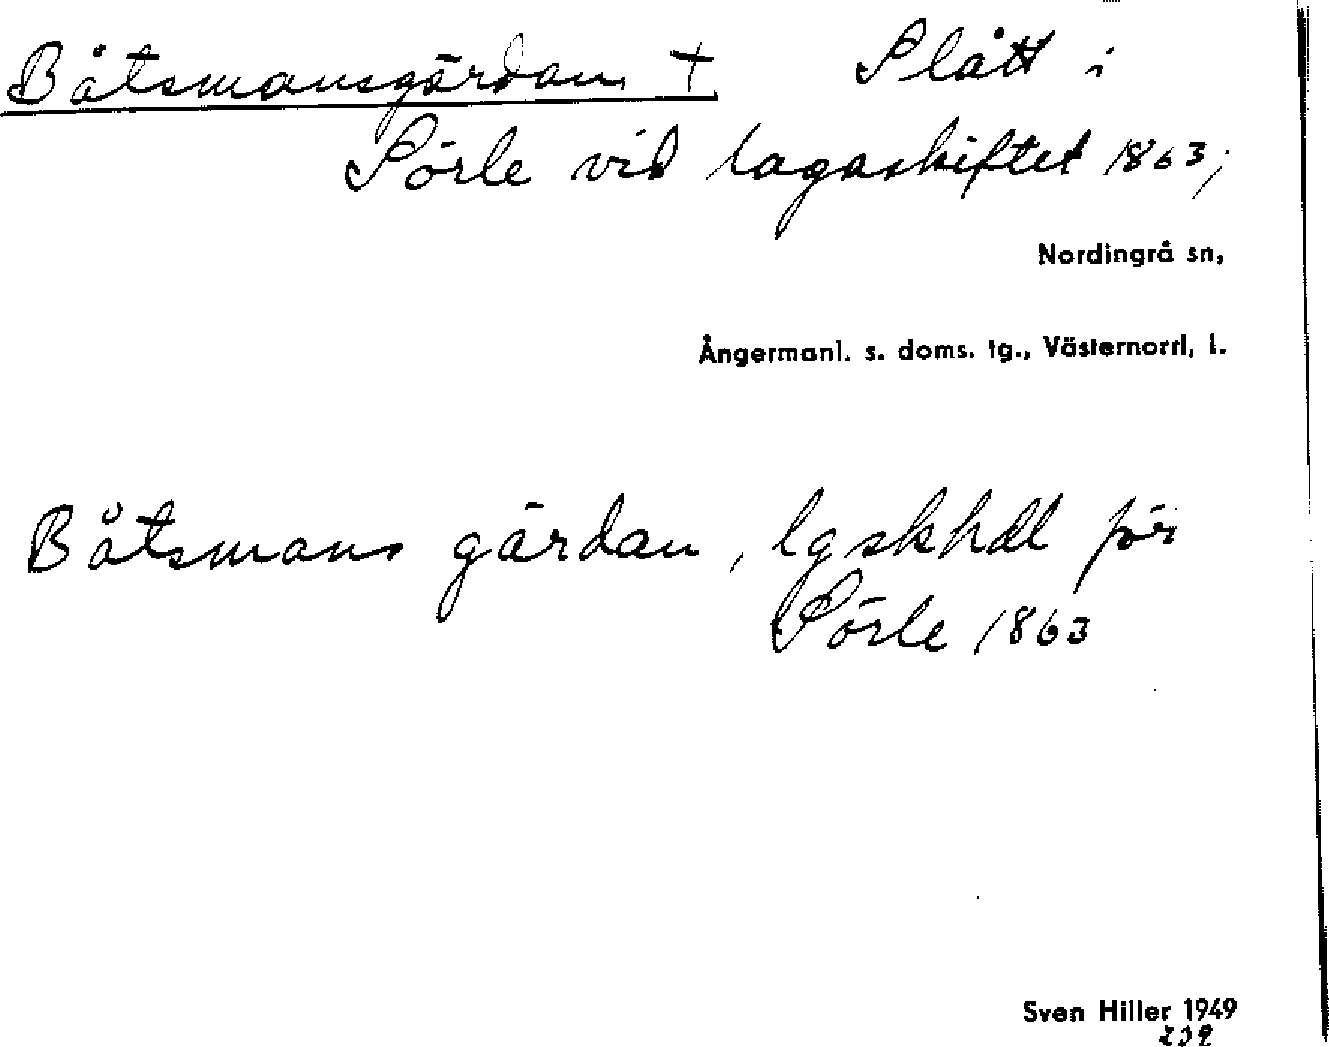 Båtsmansgärdan † Slått i
Sörle vid lagaskiftet 1863;
Nordingrå sn,
Ångermanl. s. doms. tg., Västernorrl, l.
Båtsmans gärdan, lgskhdl för
Sörle 1863
Sven Hiller 1949